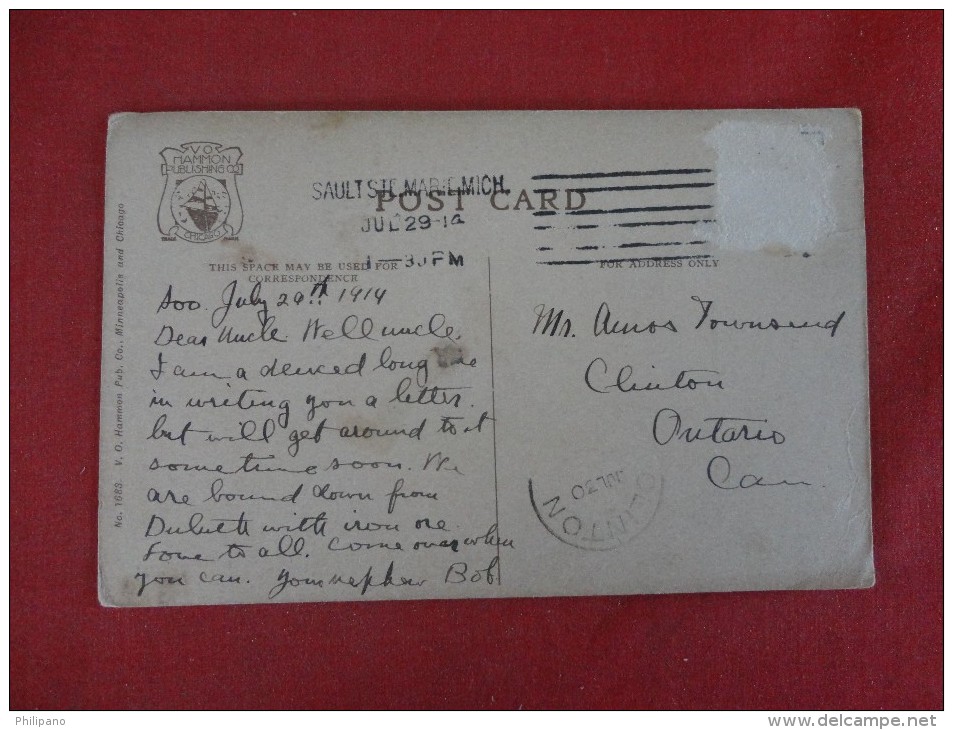 V.O.
HAMMON
PUBLISHING CO
TRADE CHICAGO MARK
SAULT STE. MARIE, MICH.
POST CARD
JUL 29
1 — 30 PM
THIS SPACE MAY BE USED FOR
CORRESPONDENCE
FOR ADDRESS ONLY
No. 1683. V. O. Hammon Pub. Co., Minneapolis and Chicago
Soo. July 29th 1914
Dear Uncle Well uncle,
I am a deuced long time
in writing you a letter.
but will get around to it
sometime soon. We
are bound down from
Duluth with iron ore.
Love to all. Come over when
you can. Your nephew Bob.
Mr. Amos Townsend
Clinton
Ontario
Can.
CLINTON
JUL 30
Philipano
www.delcampe.net